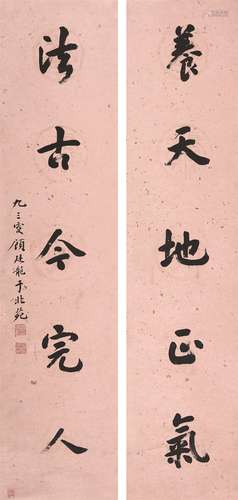 養天地正氣
法古今完人
九三叟顧廷龍于北苑